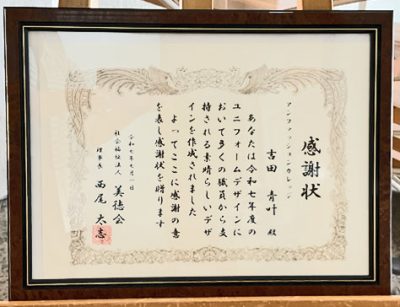 感謝状
アンファッションカレッジ
吉田 青叶 殿
あなたは令和七年度の
ユニフォームデザインに
おいて多くの職員から支
持される素晴らしいデザ
インを作成されました
よってここに感謝の意
を表し感謝状を贈ります
令和七年七月一日
社会福祉法人 美徳会
理事長 西尾 太志